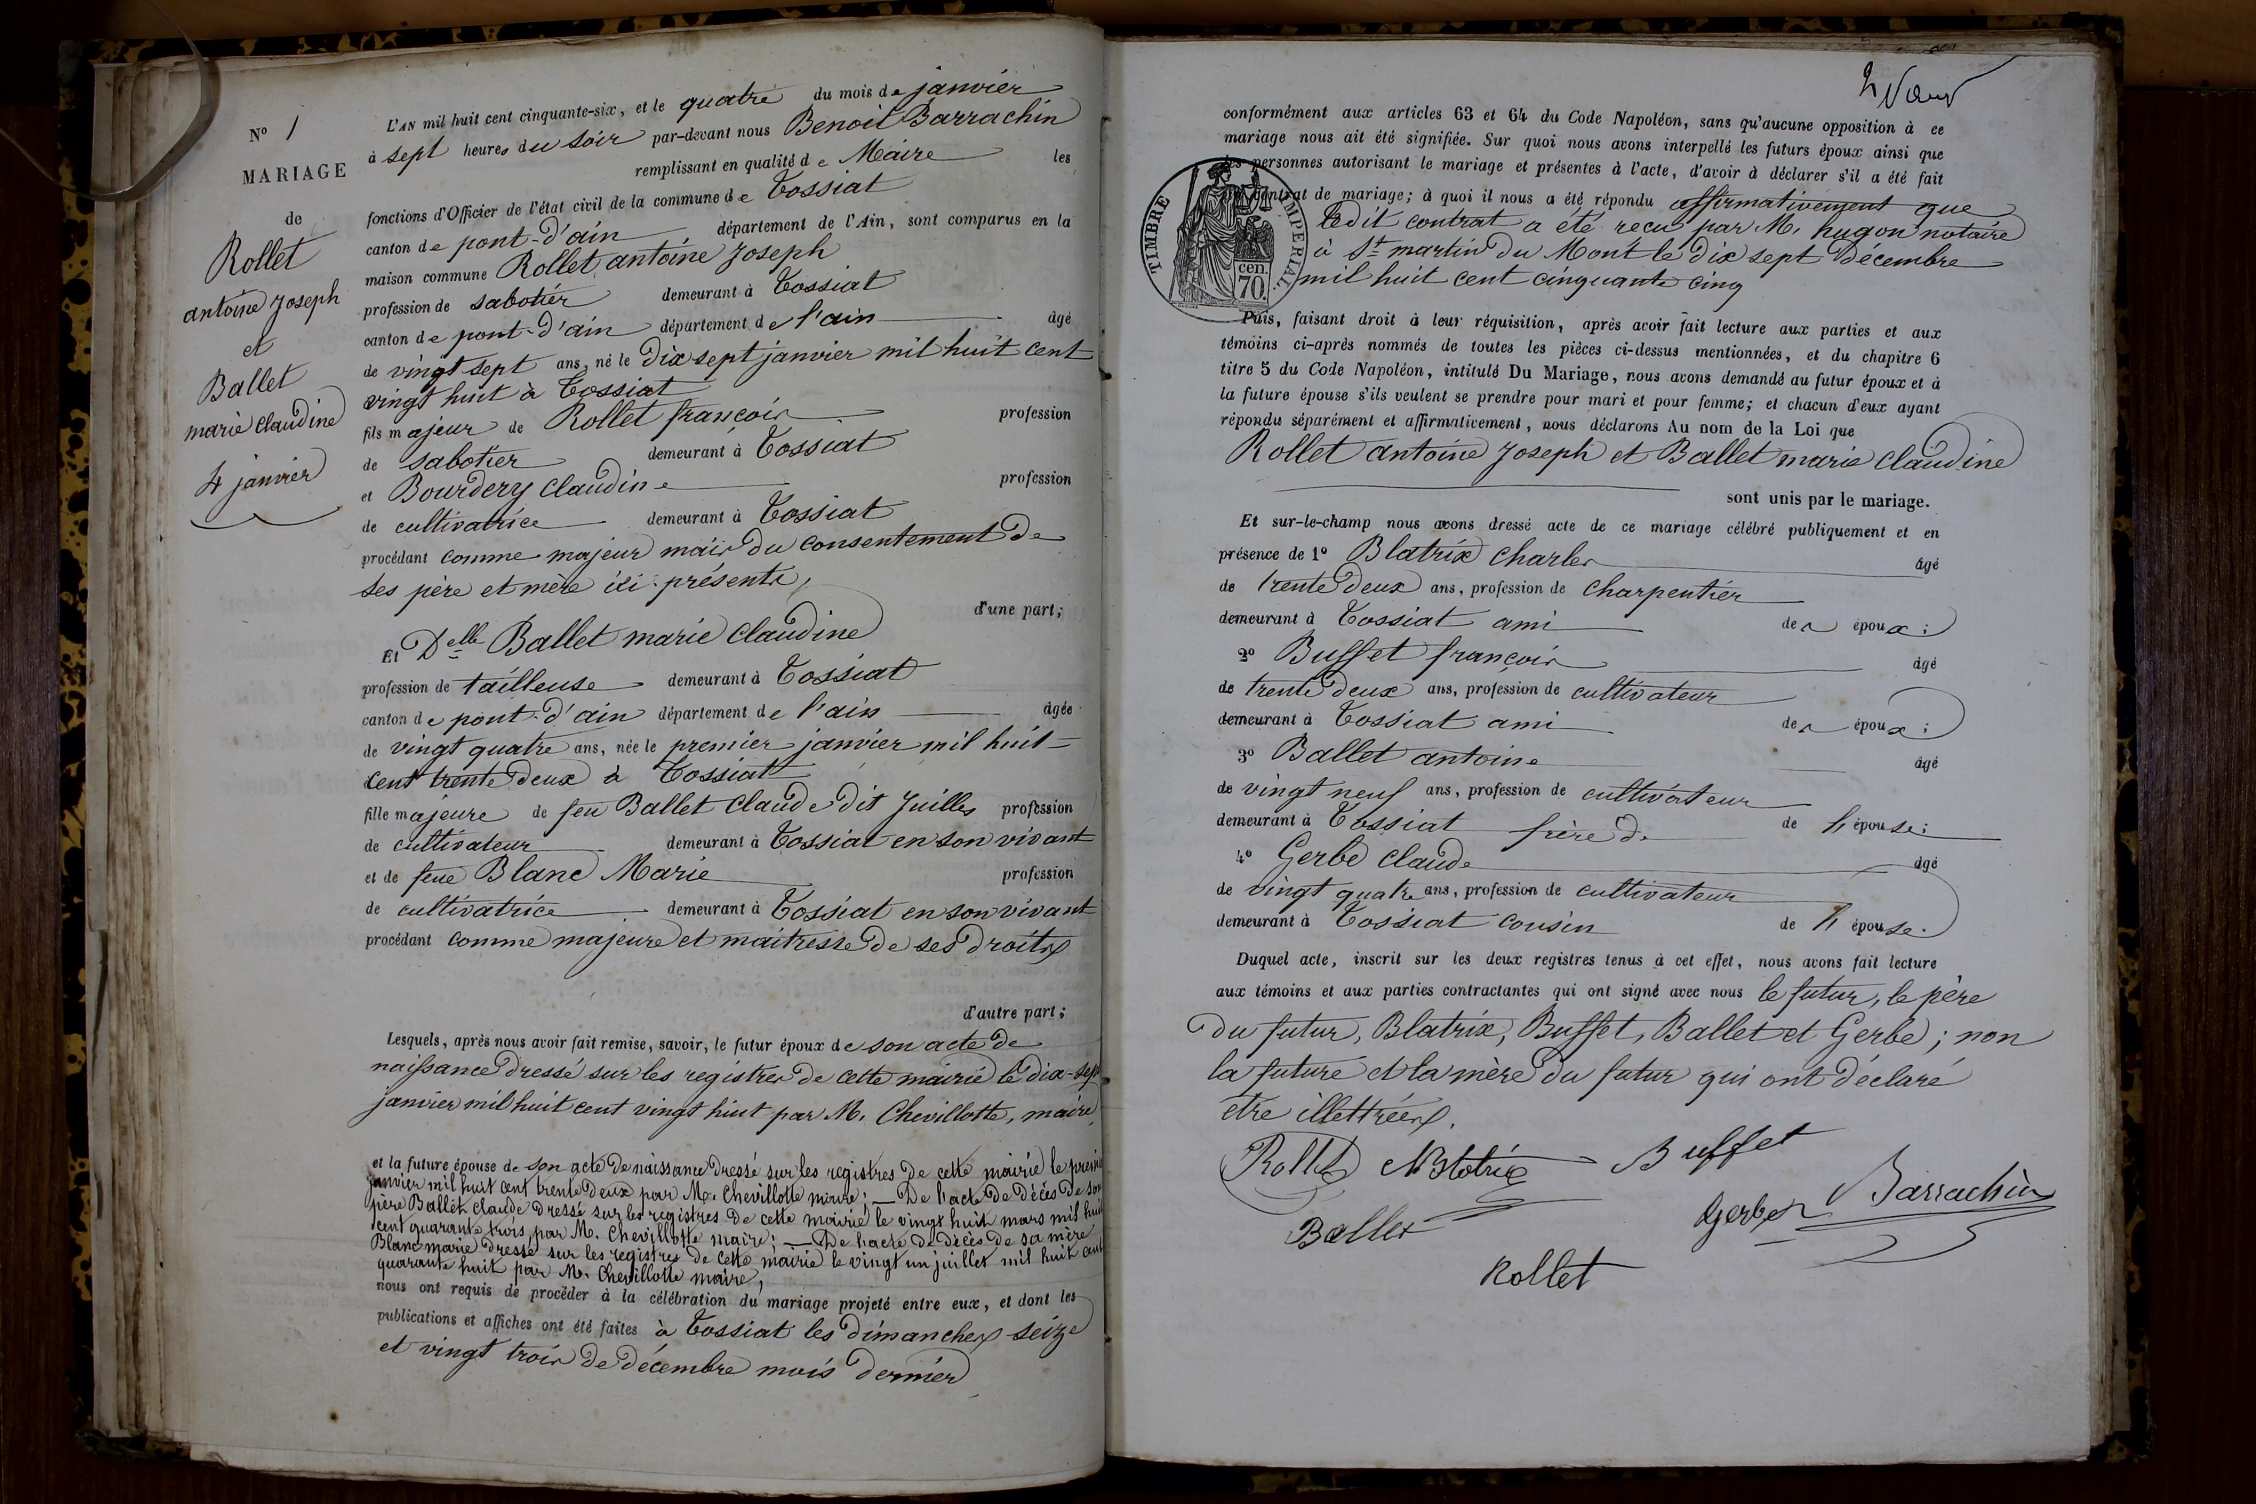 N° 1
MARIAGE
de
Rollet
antoine Joseph
et
Ballet
marie claudine
4 janvier
L'AN mil huit cent cinquante-six, et le quatre du mois de janvier
à sept heures du soir par-devant nous Benoit Barrachin
remplissant en qualité de Maire les
fonctions d'Officier de l'état civil de la commune de Tossiat
canton de pont-d'ain, département de l'Ain, sont comparus en la
maison commune Rollet antoine Joseph
profession de sabotier demeurant à Tossiat
canton de pont-d'ain département de l'ain âgé
de vingt sept ans, né le dix sept janvier mil huit cent
vingt huit à Tossiat
fils majeur de Rollet françois profession
de sabotier demeurant à Tossiat
et Bourdery claudine profession
de cultivatrice demeurant à Tossiat
procédant comme majeur mais du consentement de
ses père et mère ici présents,
d'une part;
Et Delle Ballet marie claudine
profession de tailleuse demeurant à Tossiat
canton de pont-d'ain département de l'ain âgée
de vingt quatre ans, née le premier janvier mil huit
cent trente deux à Tossiat
fille majeure de feu Ballet claude dit Juilles profession
de cultivateur demeurant à Tossiat en son vivant
et de feue Blanc Marie profession
de cultivatrice demeurant à Tossiat en son vivant
procédant comme majeure et maitresse de ses droits
d'autre part;
Lesquels, après nous avoir fait remise, savoir, le futur époux de son acte de
naissance dressé sur les registres de cette mairie le dix-sept
janvier mil huit cent vingt huit par M. Chevillotte, maire,
et la future épouse de son acte de naissance dressé sur les registres de cette mairie le premier
janvier mil huit cent trente deux par M. Chevillotte maire; — De l'acte de décès de son
père Ballet claude dressé sur les registres de cette mairie le vingt huit mars mil huit
cent quarante trois par M. Chevillotte maire; — De l'acte de décès de sa mère
Blanc marie dressé sur les registres de cette mairie le vingt un juillet mil huit cent
quarante huit par M. Chevillotte maire,
nous ont requis de procéder à la célébration du mariage projeté entre eux, et dont les
publications et affiches ont été faites à Tossiat les dimanches seize
et vingt trois de décembre mois dernier
conformément aux articles 63 et 64 du Code Napoléon, sans qu'aucune opposition à ce
mariage nous ait été signifiée. Sur quoi nous avons interpellé les futurs époux ainsi que
les personnes autorisant le mariage et présentes à l'acte, d'avoir à déclarer s'il a été fait
contrat de mariage; à quoi il nous a été répondu affirmativement que
ledit contrat a été reçu par M. hugon notaire
à St martin du Mont le dix sept décembre
mil huit cent cinquante cinq
TIMBRE IMPERIAL
cen.
70.
Puis, faisant droit à leur réquisition, après avoir fait lecture aux parties et aux
témoins ci-après nommés de toutes les pièces ci-dessus mentionnées, et du chapitre 6
titre 5 du Code Napoléon, intitulé Du Mariage, nous avons demandé au futur époux et à
la future épouse s'ils veulent se prendre pour mari et pour femme; et chacun d'eux ayant
répondu séparément et affirmativement, nous déclarons Au nom de la Loi que
Rollet antoine Joseph et Ballet marie claudine
sont unis par le mariage.
Et sur-le-champ nous avons dressé acte de ce mariage célébré publiquement et en
présence de 1° Blatrix Charles âgé
de trente deux ans, profession de charpentier
demeurant à Tossiat ami des époux;
2° Buffet françois âgé
de trente deux ans, profession de cultivateur
demeurant à Tossiat ami des époux;
3° Ballet antoine âgé
de vingt neuf ans, profession de cultivateur
demeurant à Tossiat frère de de l'épouse;
4° Gerbe claude âgé
de vingt quatre ans, profession de cultivateur
demeurant à Tossiat cousin de l'épouse.
Duquel acte, inscrit sur les deux registres tenus à cet effet, nous avons fait lecture
aux témoins et aux parties contractantes qui ont signé avec nous le futur, le père
du futur, Blatrix, Buffet, Ballet et Gerbe; non
la future et la mère du futur qui ont déclaré
être illettrées.
Rollet Blatrix Buffet
Ballet Gerbe Barrachin
Rollet